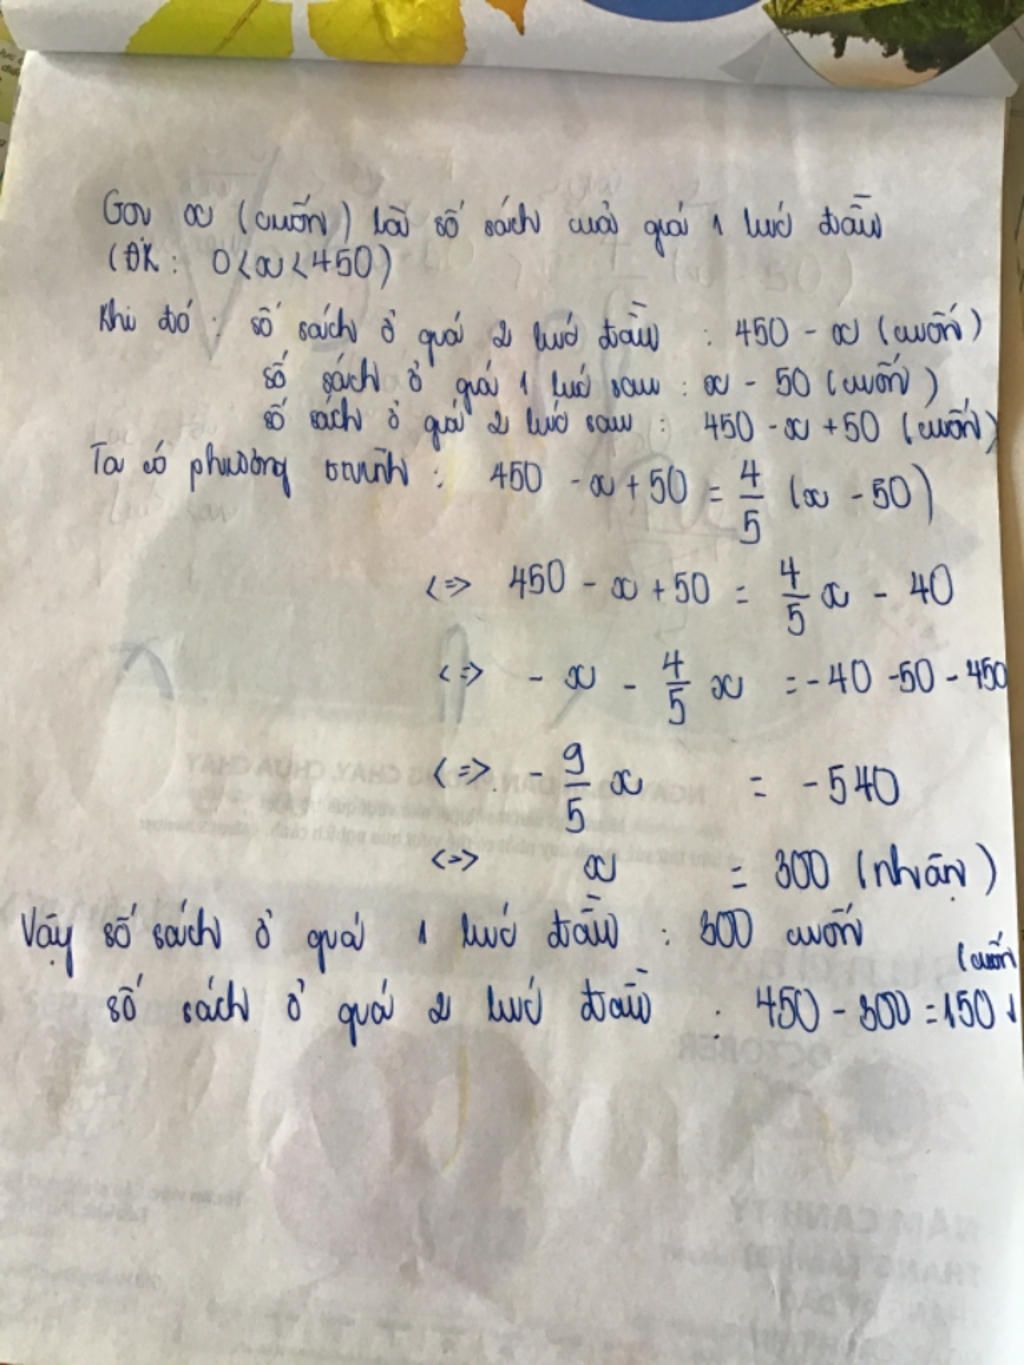 Gọi x (cuốn) là số sách của giá 1 lúc đầu
(ĐK: 0<x<450)
Khi đó: số sách ở giá 2 lúc đầu : 450 - x (cuốn)
số sách ở giá 1 lúc sau : x - 50 (cuốn)
số sách ở giá 2 lúc sau : 450 - x + 50 (cuốn)
Ta có phương trình : 450 - x + 50 = 4/5 (x - 50)
<=> 450 - x + 50 = 4/5 x - 40
<=> - x - 4/5 x = - 40 - 50 - 450
<=> - 9/5 x = - 540
<=> x = 300 (nhận)
Vậy số sách ở giá 1 lúc đầu : 300 cuốn
số sách ở giá 2 lúc đầu : 450 - 300 = 150 (cuốn
OCTOBER
NĂM CANH TÝ